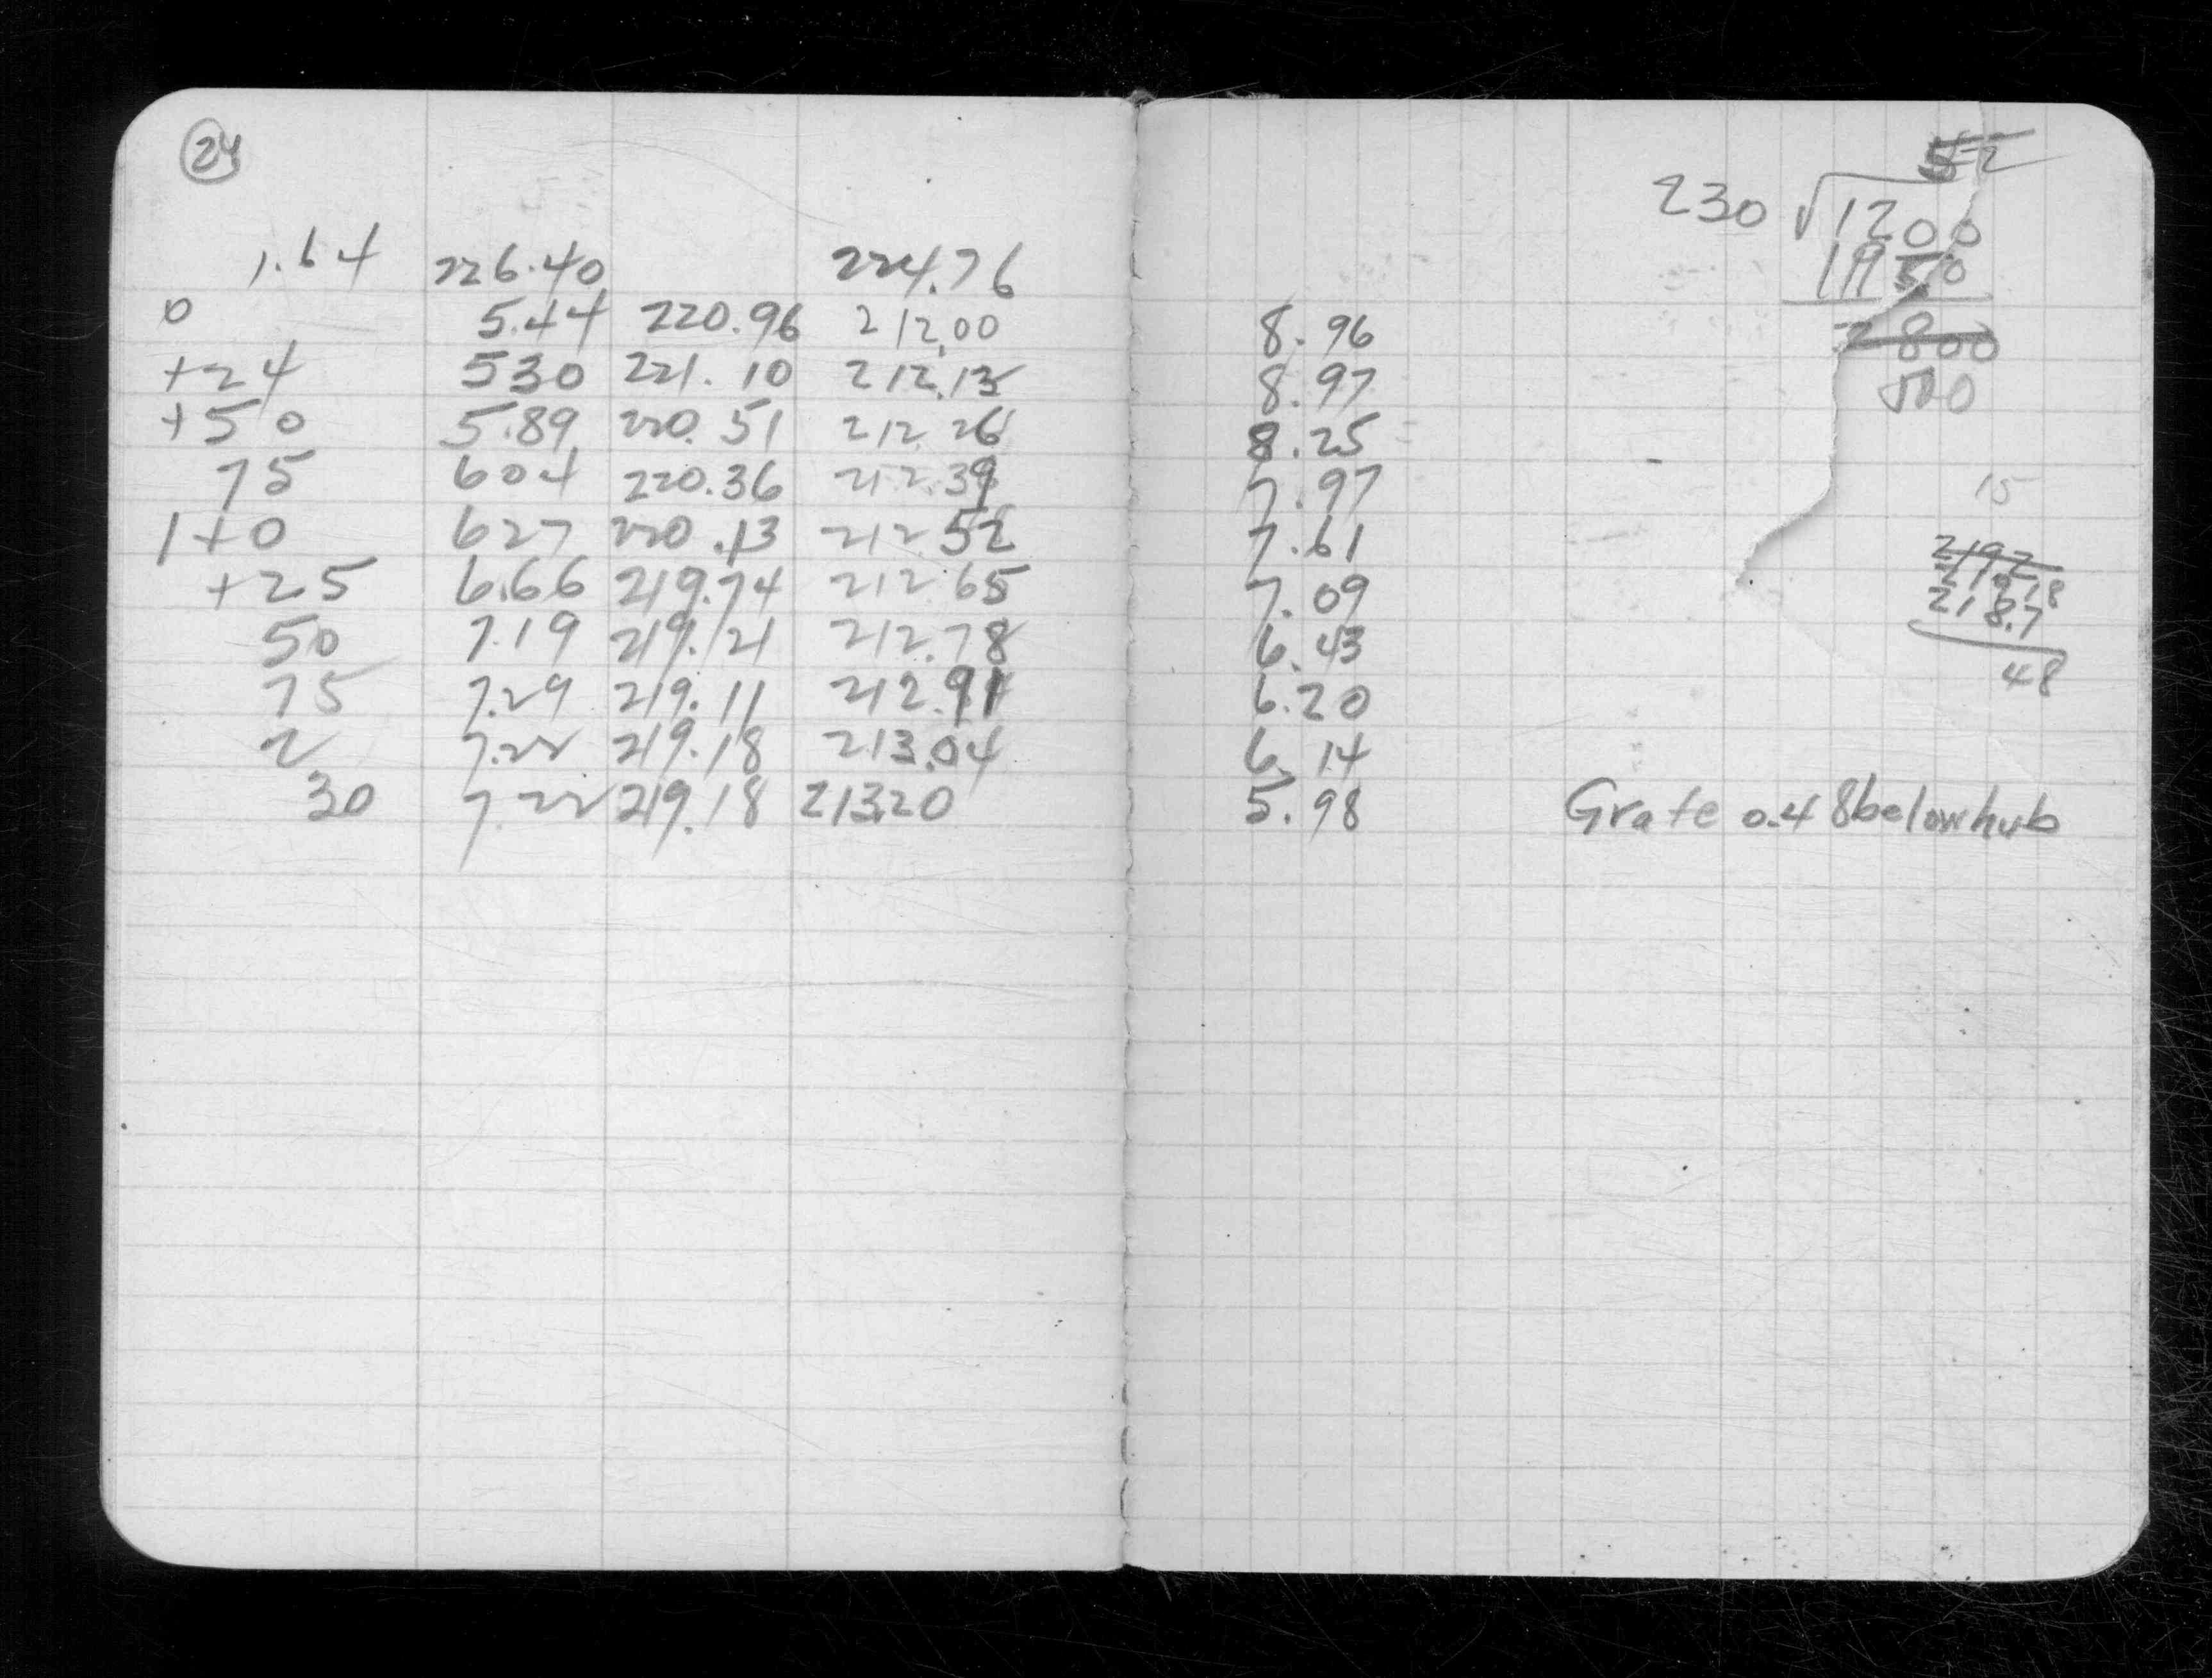 24
1.64 226.40 224.76
0 5.44 220.96 212.00 8.96
+24 530 221.10 212.13 8.97
+50 5.89 220.51 212.26 8.25
75 604 220.36 212.39 7.97
1+0 627 220.13 212.52 7.61
+25 6.66 219.74 212.65 7.09
50 7.19 219.21 212.78 6.43
75 7.29 219.11 212.91 6.20
2 7.22 219.18 213.04 6.14
30 7.22 219.18 213.20 5.98
Grate 0.48 below hub
52
230 √1200
800
500
15
2192
219.18
218.7
48